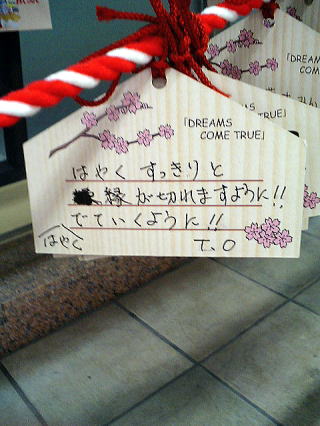 「DREAMS
COME TRUE」
はやく すっきりと
縁が切れますように!!
でていくように!!
はやく
T.O
「DREAMS
COME
TRUE」